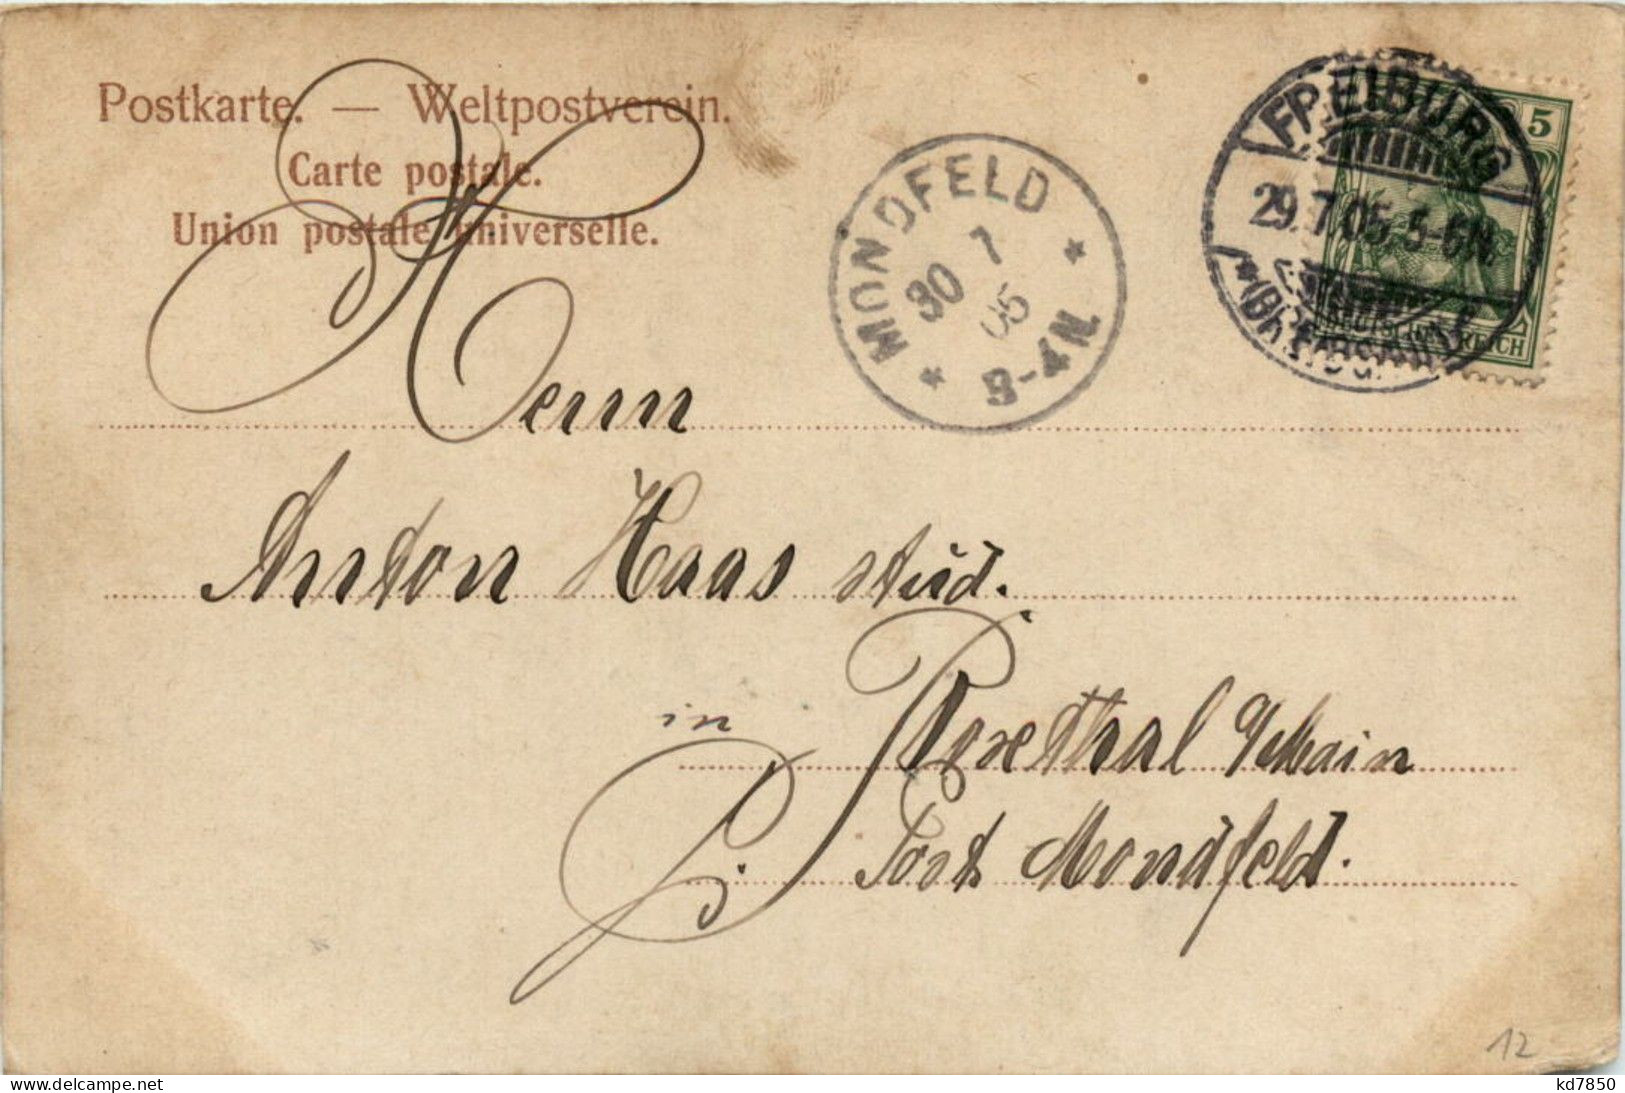 Postkarte. — Weltpostverein.
Carte postale.
Union postale universelle.
FREIBURG
29.7.05 5-6N.
*(BREISGAU)
5
DEUTSCHES REICH
MONDFELD
30 7
05
3-4N.
Herrn
Anton Haas stud.
in Roxethal a/Main
Post Mondfeld.
12
kd7850